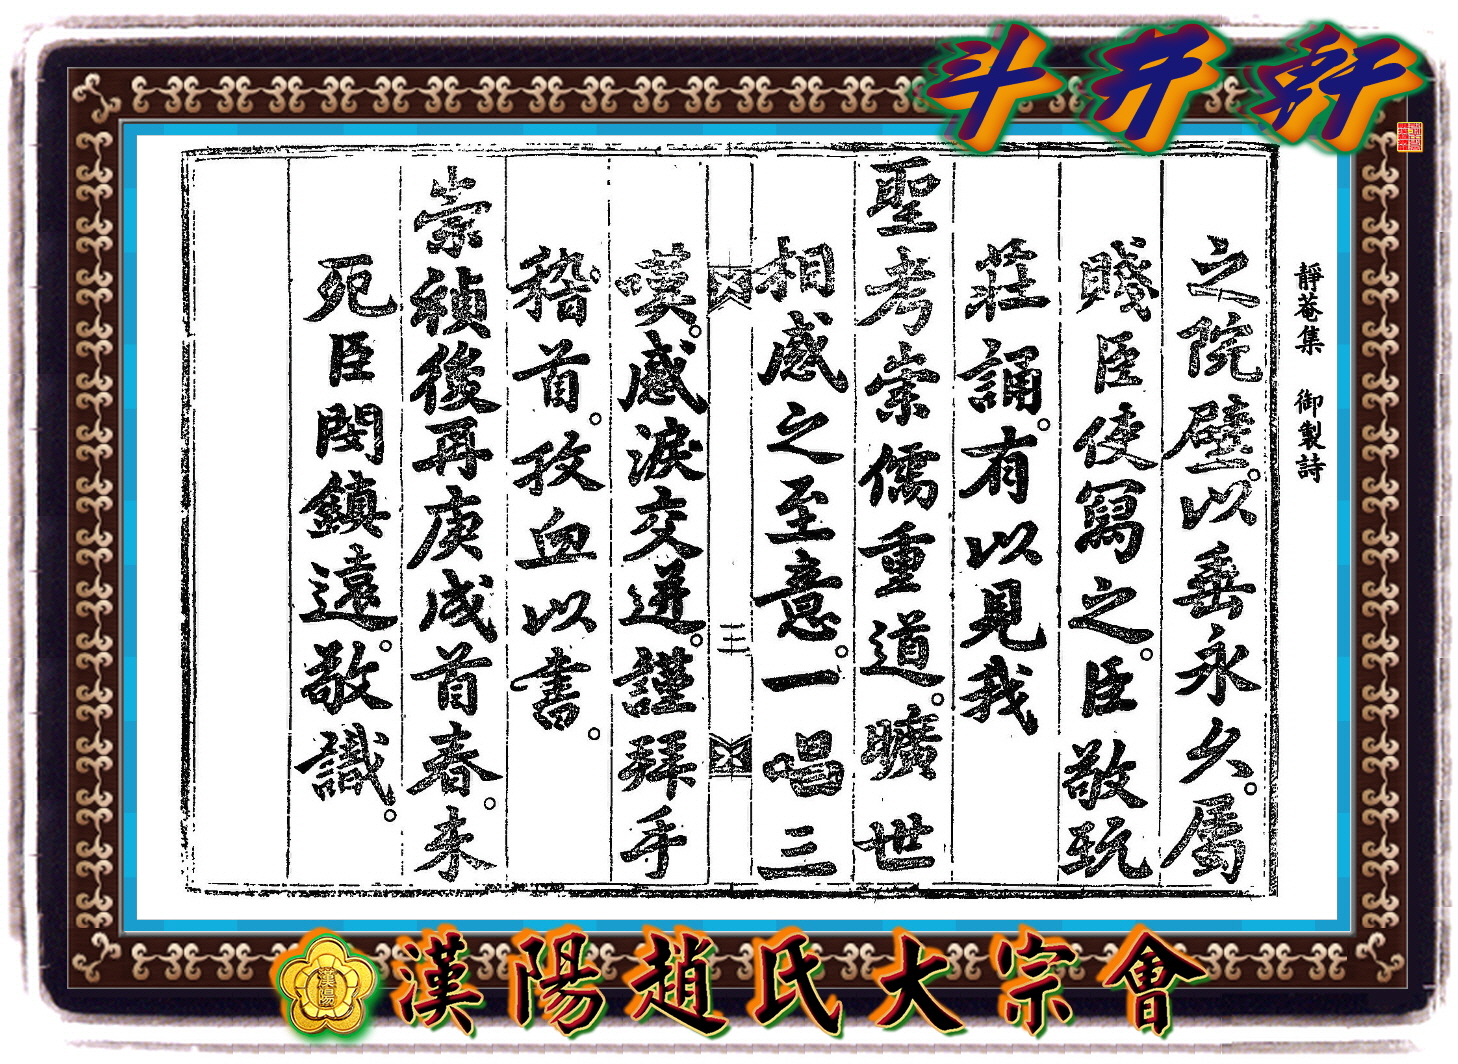 斗井軒
靜菴集 御製詩
之院壁。以垂永久。屬
賤臣使寫之。臣敬玩
莊誦。有以見我
聖考崇儒重道。曠世
相感之至意。一唱三
三
嘆。感淚交迸。謹拜手
稽首。孜血以書。
崇禎後再庚戌首春。未
死臣閔鎭遠。敬識。
漢陽
漢陽趙氏大宗會